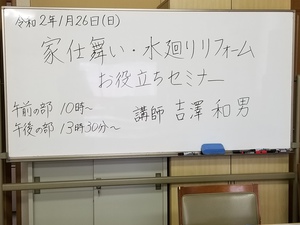 令和2年1月26日(日)
家仕舞い・水廻りリフォーム
お役立ちセミナー
午前の部 10時~
午後の部 13時30分~
講師 吉澤 和男